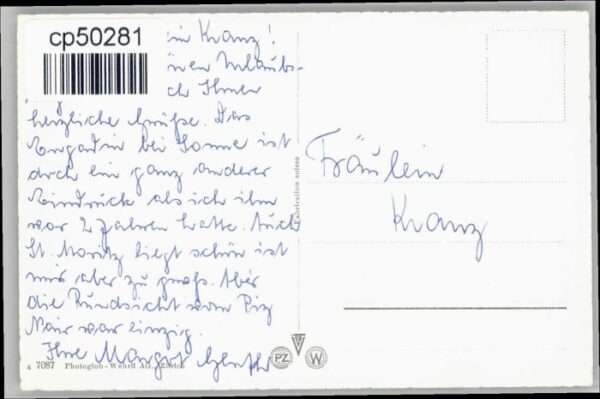 cp50281
ein Kranz!
nen Urlaubs-
ch Ihnen
herzliche Grüße. Das
Engadin bei Sonne ist
doch ein ganz anderer
Eindruck als ich ihn
vor 2 Jahren hatte. Auch
St. Moritz liegt schön ist
mir aber zu groß. Aber
die Rundsicht vom Piz
Nair war einzig.
Ihre Margot
Fräulein
Kranz
4 7087 Photoglob-Wehrli AG, Zürich
PZ
W